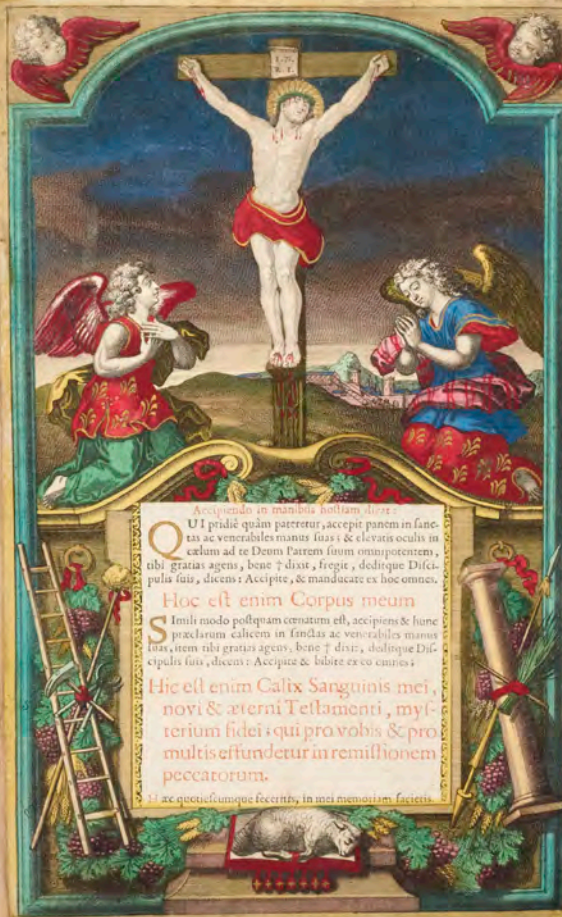 I. N.
R. I.
Accipiendo in manibus hostiam dicat:
QUI pridiè quàm pateretur, accepit panem in sanc-
tas ac venerabiles manus suas; & elevatis oculis in
cælum ad te Deum Patrem suum omnipotentem,
tibi gratias agens, bene † dixit, fregit, deditque Disci-
pulis suis, dicens: Accipite, & manducate ex hoc omnes.
Hoc est enim Corpus meum
SImili modo postquam cœnatum est, accipiens & hunc
præclarum calicem in sanctas ac venerabiles manus
suas, item tibi gratias agens, bene † dixit, deditque Dis-
cipulis suis, dicens: Accipite & bibite ex eo omnes;
Hic est enim Calix Sanguinis mei,
novi & æterni Testamenti, mys-
terium fidei; qui pro vobis & pro
multis effundetur in remissionem
peccatorum.
Hæc quotiescumque feceritis, in mei memoriam facietis.